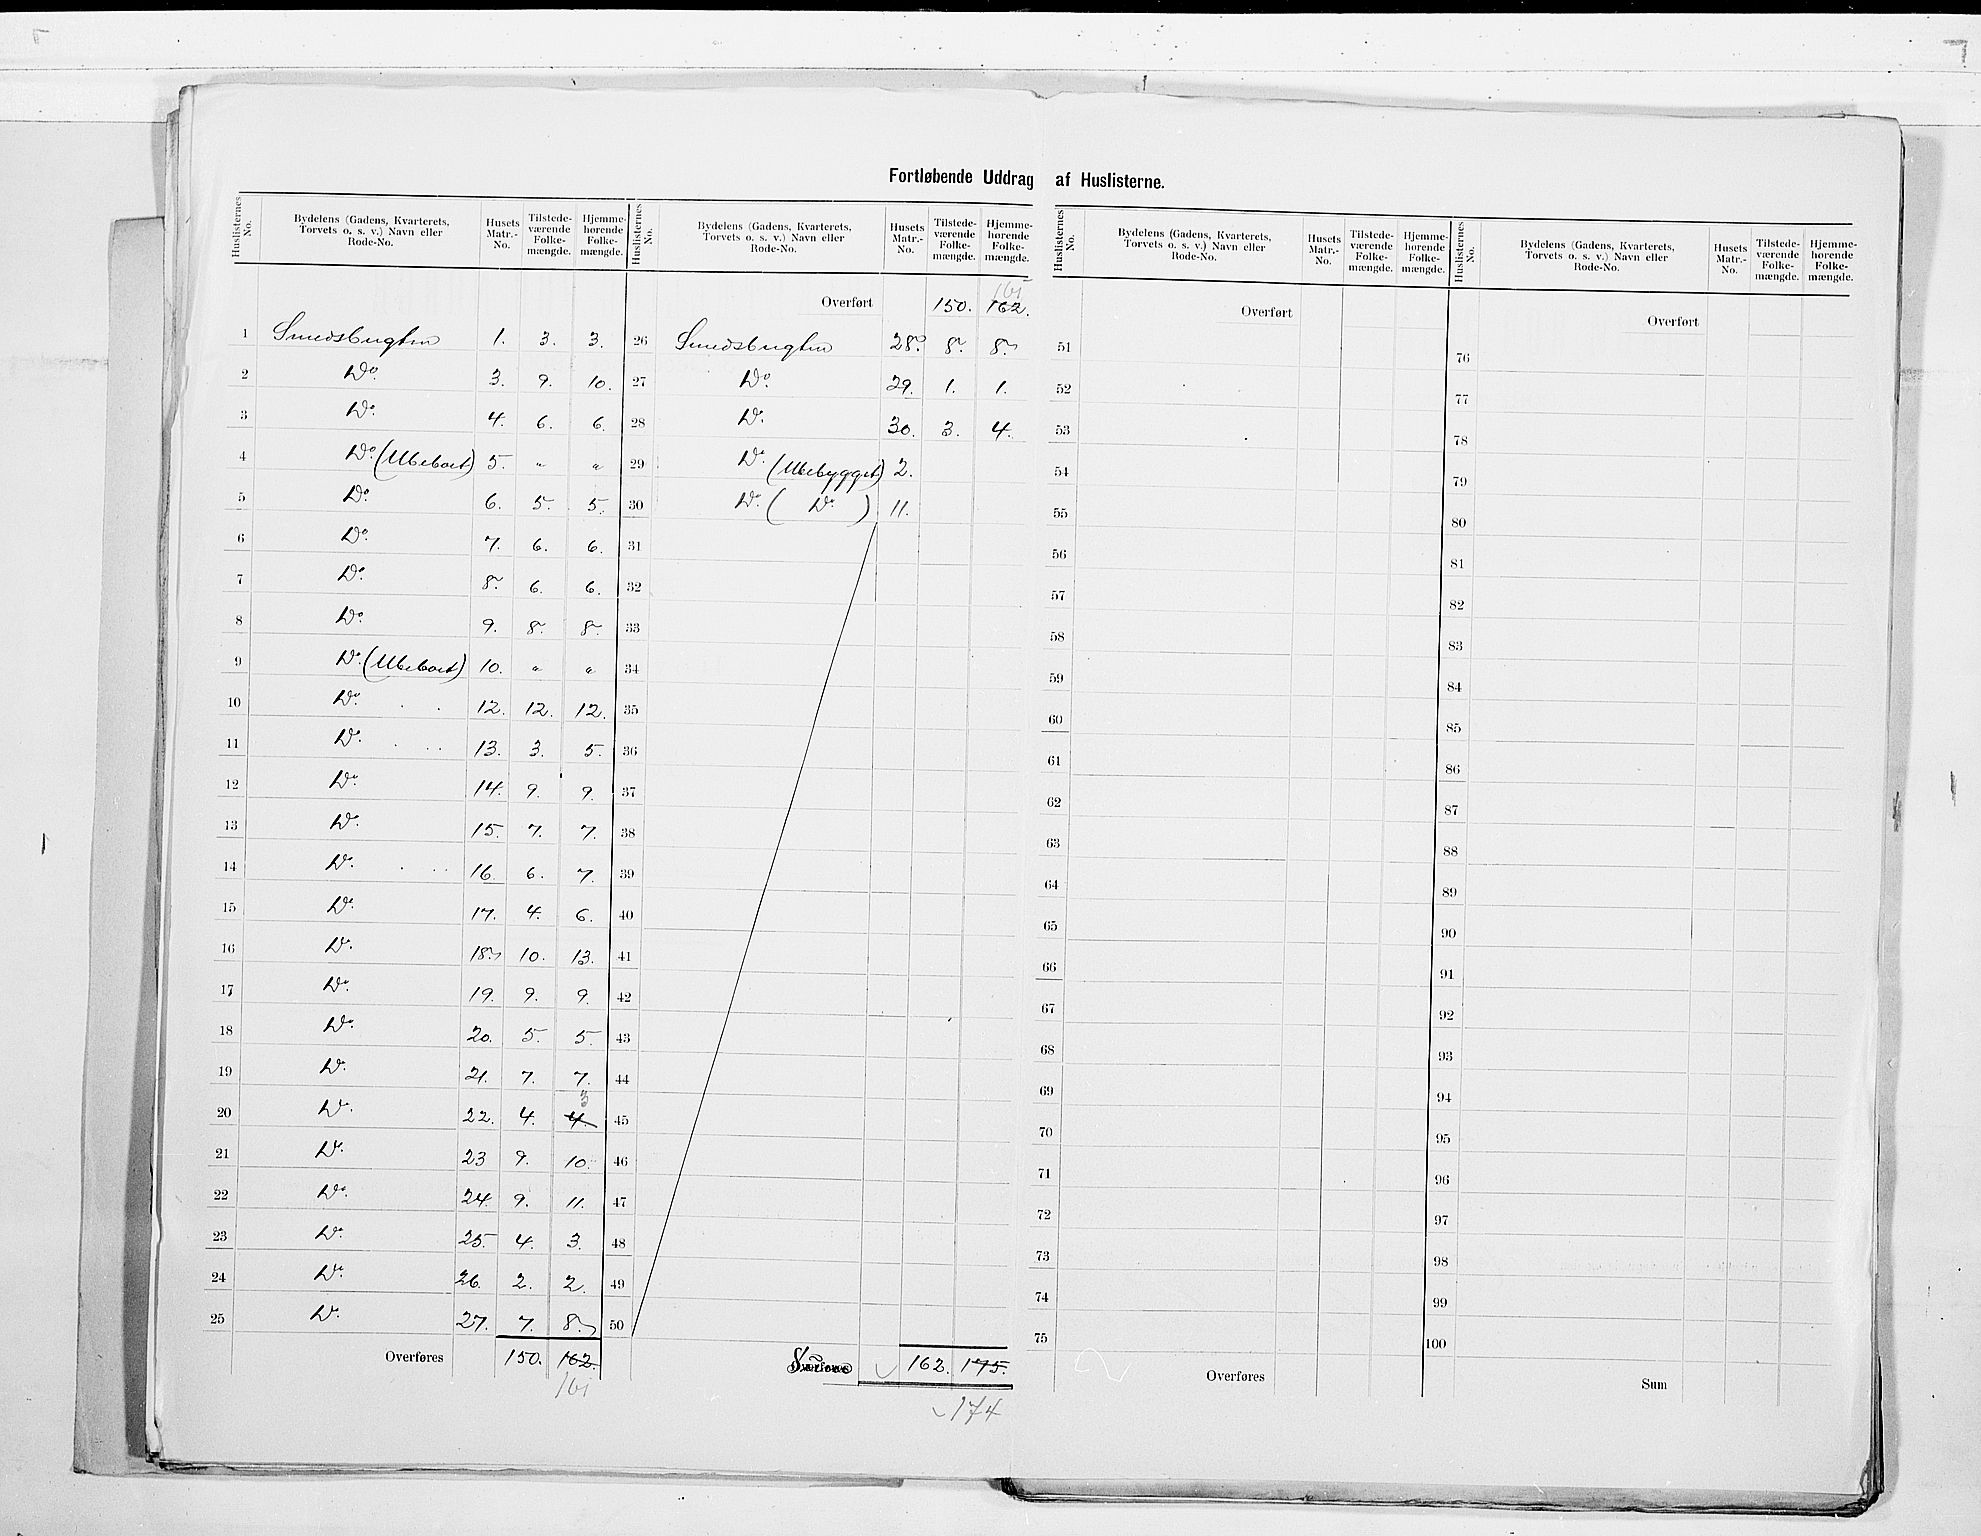 Fortløbende Uddrag af Huslisterne.
Huslisternes No. | Bydelens (Gadens, Kvarterets, Torvets o. s. v.) Navn eller Rode-No. | Husets Matr.-No. | Tilstede-værende Folke-mængde. | Hjemme-hørende Folke-mængde.
1 Smedsbugten 1. 3. 3.
2 Do. 3. 9. 10.
3 Do. 4. 6. 6.
4 Do. (Ubeboet) 5. " "
5 Do. 6. 5. 5.
6 Do. 7. 6. 6.
7 Do. 8. 6. 6.
8 Do. 9. 8. 8.
9 Do. (Ubeboet) 10. " "
10 Do. 12. 12. 12.
11 Do. 13. 3. 5.
12 Do. 14. 9. 9.
13 Do. 15. 7. 7.
14 Do. 16. 6. 7.
15 Do. 17. 4. 6.
16 Do. 18. 10. 13.
17 Do. 19. 9. 9.
18 Do. 20. 5. 5.
19 Do. 21. 7. 7.
20 Do. 22. 4. 4. 3
21 Do. 23 9. 10.
22 Do. 24. 9. 11.
23 Do. 25. 4. 3.
24 Do. 26. 2. 2.
25 Do. 27. 7. 8.
Overføres 150. 162.
161
Huslisternes No. | Bydelens (Gadens, Kvarterets, Torvets o. s. v.) Navn eller Rode-No. | Husets Matr.-No. | Tilstede-værende Folke-mængde. | Hjemme-hørende Folke-mængde.
161
Overført 150. 162.
26 Smedsbugten 28. 8. 8.
27 Do. 29. 1. 1.
28 Do. 30. 3. 4.
29 Do. (Ubebygget) 2.
30 Do. ( Do. ) 11.
31
32
33
34
35
36
37
38
39
40
41
42
43
44
45
46
47
48
49
50
Overføres Summa 162. 175.
174
Huslisternes No. | Bydelens (Gadens, Kvarterets, Torvets o. s. v.) Navn eller Rode-No. | Husets Matr.-No. | Tilstede-værende Folke-mængde. | Hjemme-hørende Folke-mængde.
Overført
51
52
53
54
55
56
57
58
59
60
61
62
63
64
65
66
67
68
69
70
71
72
73
74
75
Overføres
Huslisternes No. | Bydelens (Gadens, Kvarterets, Torvets o. s. v.) Navn eller Rode-No. | Husets Matr.-No. | Tilstede-værende Folke-mængde. | Hjemme-hørende Folke-mængde.
Overført
76
77
78
79
80
81
82
83
84
85
86
87
88
89
90
91
92
93
94
95
96
97
98
99
100
Sum